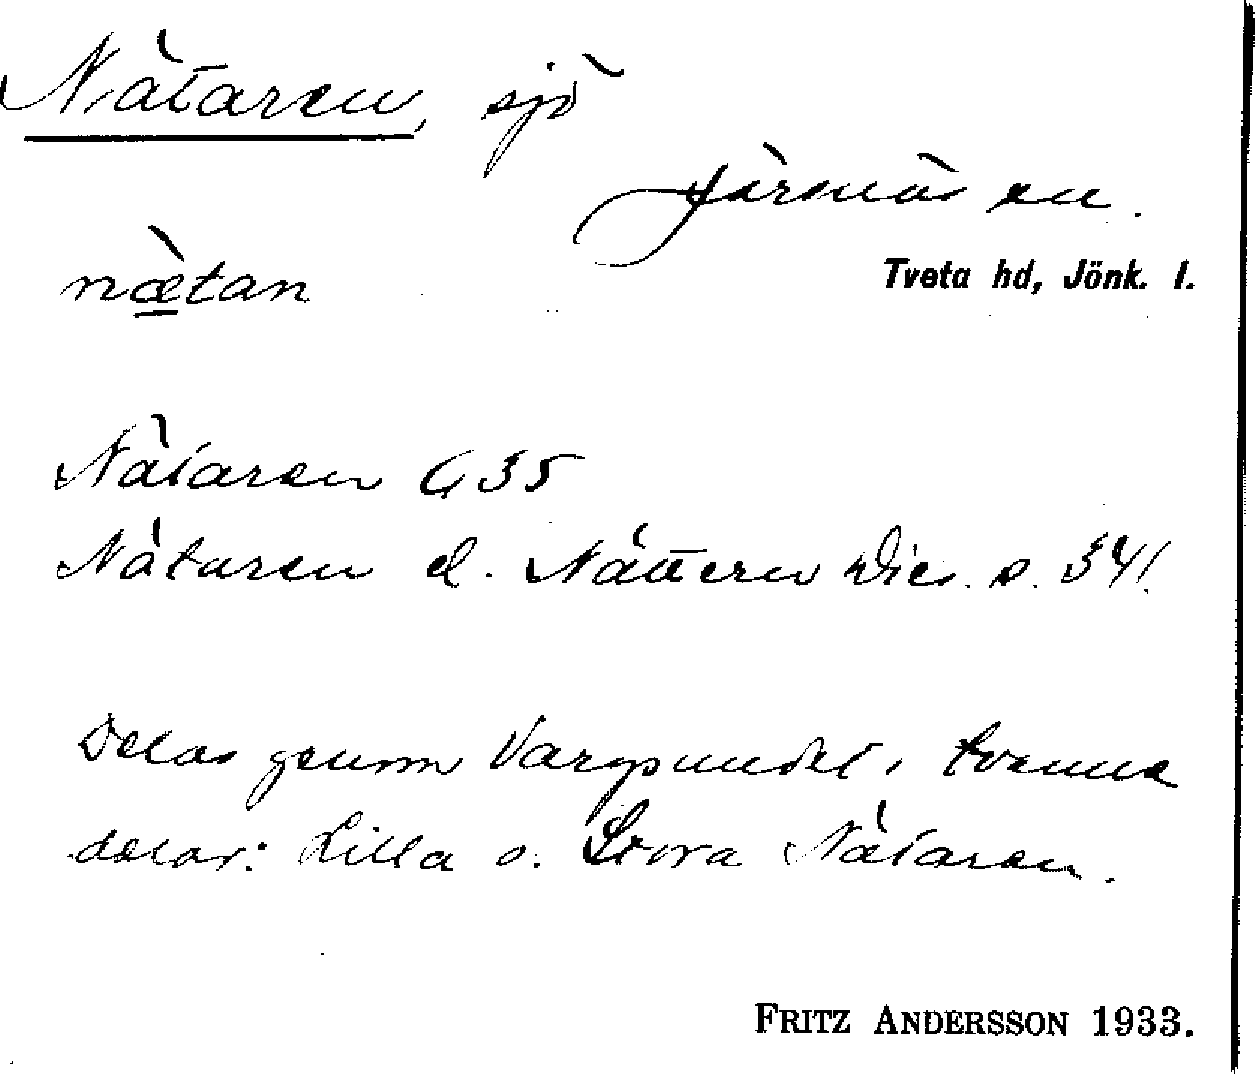 Nätaren, sjö
Järsnäs sn.
nætan
Tveta hd, Jönk. l.
Nätaren G 35
Nätaren el. Nättern Wies. s. 341.
Delas genom Vargsundet i tvenne
delar: Lilla o. Stora Nätaren.
FRITZ ANDERSSON 1933.